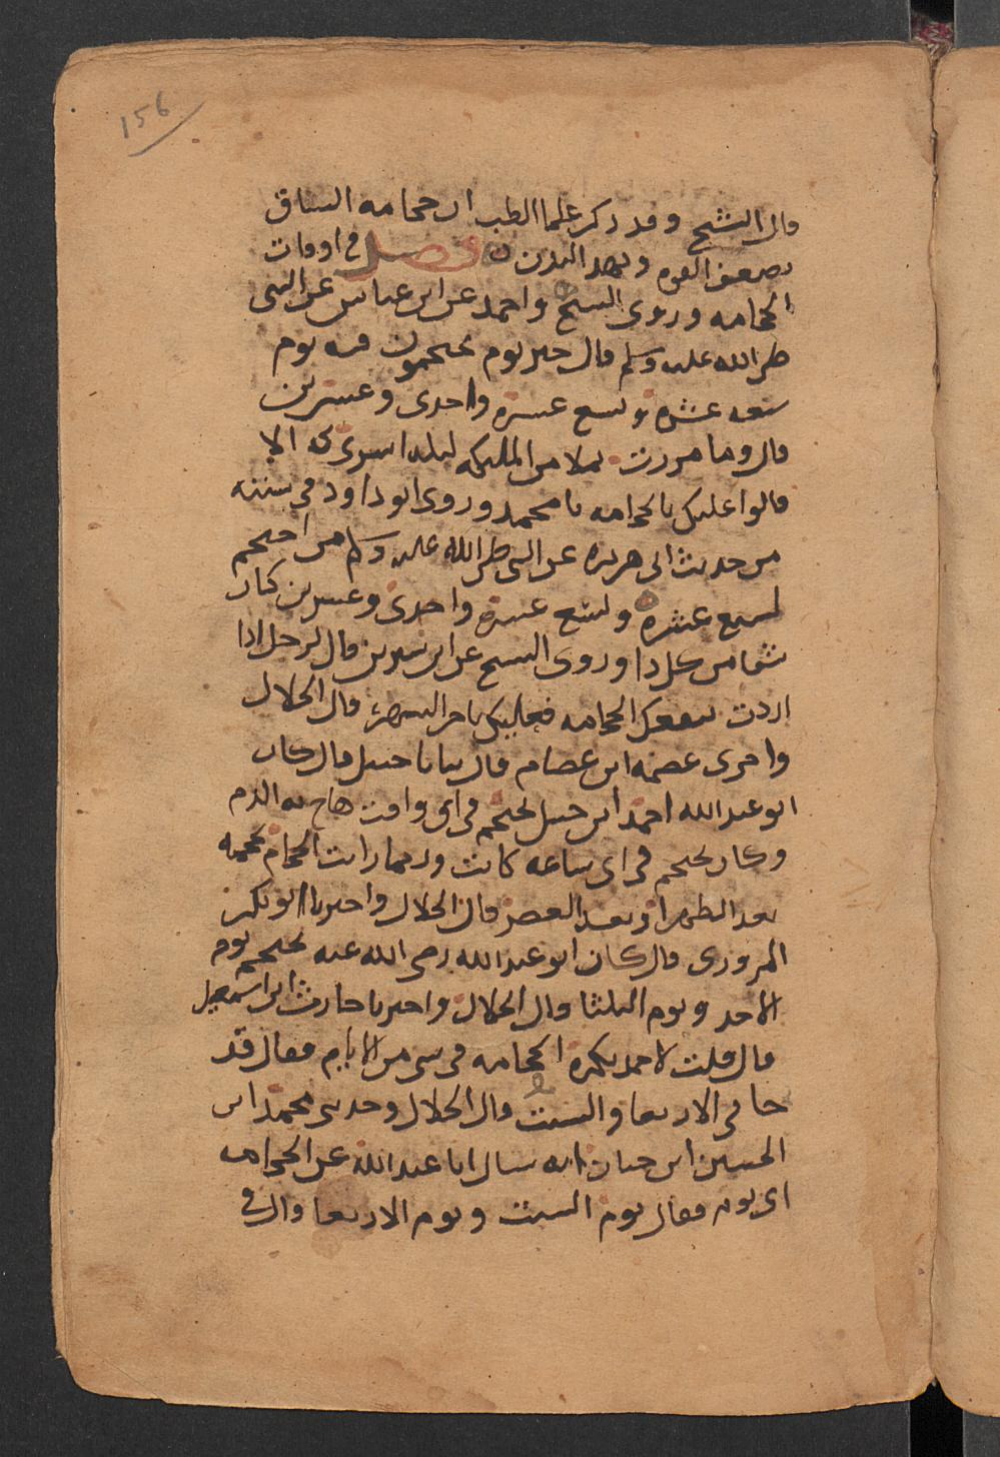 156
قال الشيخ وقد ذكر علما الطب ان حجامه الساق
تضعف القوه وتهد البدن فصل في اوقات
الحجامه وروى الشيخ واحمد عن ابن عباس عن النبي
صلى الله عليه وسلم قال خير يوم تحتجمون فيه يوم
سبعه عشره وتسع عشره واحدى وعشرين
قال وما مررت بملا من المليكه ليله اسرى بى الا
قالوا عليك بالحجامه يا محمد وروى ابو داود في سننه
من حديث ابى هريره عن النبي صلى الله عليه وسلم من احتجم
لسبع عشره وتسع عشره واحدى وعشرين كان
شفا من كل دا وروى الشيخ عن ابن سيرين قال لرجل اذا
اردت ينفعك الحجامه فعليك باخر الشهر قال الخلال
واخبرني عصمه ابن عصام قال ثنا حنبل قال كان
ابو عبد الله احمد ابن حنبل يحتجم في اي وقت هاج به الدم
وكان يحتجم في اي ساعه كانت وربما رايت الحجام يحجمه
بعد الظهر او بعد العصر قال الخلال واخبرنا ابو بكر
المروزى قال كان ابو عبد الله رضى الله عنه يحتجم يوم
الاحد ويوم الثلثا قال الخلال واخبرنا حارث ابن اسمعيل
قال قلت لاحمد يكره الحجامه في شى من الايام فقال قد
جا في الاربعا والسبت قال الخلال وحدثنى محمد ابن
الحسين ابن حسان انه سال ابا عبد الله عن الحجامه
اى يوم فقال يوم السبت ويوم الاربعا وان في